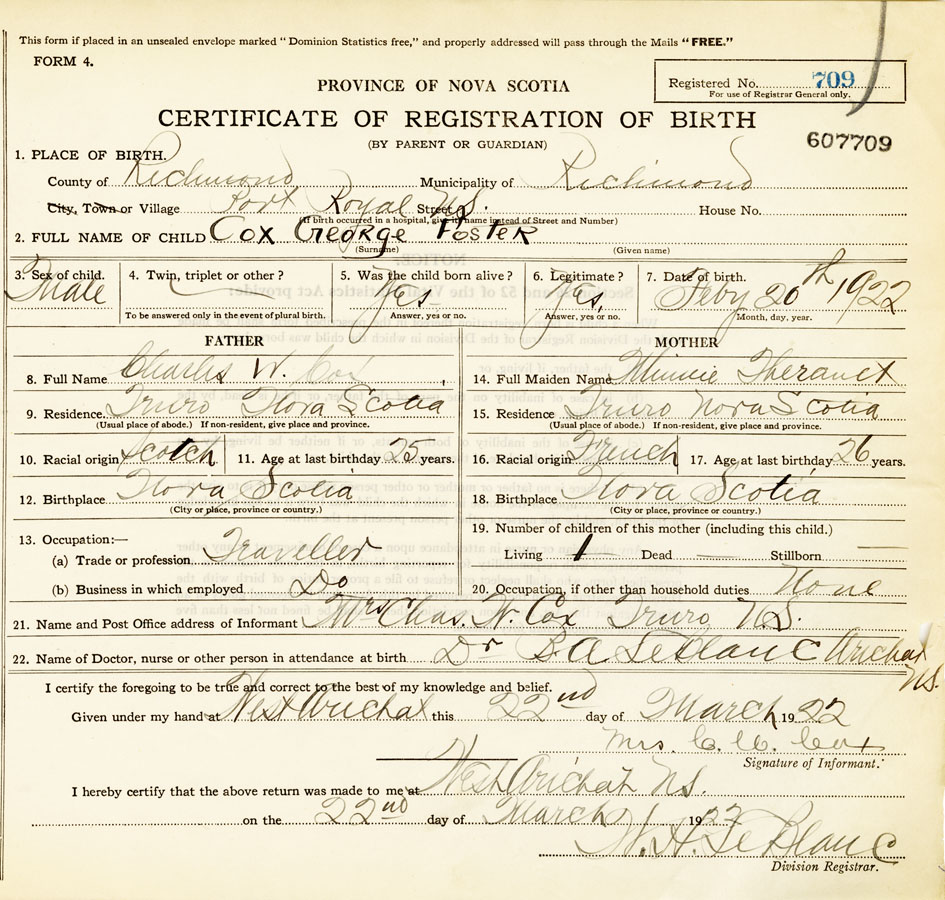 This form if placed in an unsealed envelope marked "Dominion Statistics free," and properly addressed will pass through the Mails "FREE."
FORM 4.
PROVINCE OF NOVA SCOTIA
Registered No. 709
For use of Registrar General only.
CERTIFICATE OF REGISTRATION OF BIRTH
607709
(BY PARENT OR GUARDIAN)
1. PLACE OF BIRTH.
County of Richmond Municipality of Richmond
City, Town or Village Port Royal Street N.S. House No.
(If birth occurred in a hospital, give its name instead of Street and Number)
2. FULL NAME OF CHILD Cox George Foster
(Surname) (Given name)
3. Sex of child. Male
4. Twin, triplet or other?
To be answered only in the event of plural birth.
5. Was the child born alive? Yes
Answer, yes or no.
6. Legitimate? Yes
Answer, yes or no.
7. Date of birth. Feby 20th 1922
Month, day, year.
FATHER
8. Full Name Charles W. Cox
9. Residence Truro Nova Scotia
(Usual place of abode.) If non-resident, give place and province.
10. Racial origin Scotch 11. Age at last birthday 25 years.
12. Birthplace Nova Scotia
(City or place, province or country.)
13. Occupation:—
(a) Trade or profession Traveller
(b) Business in which employed Do
MOTHER
14. Full Maiden Name Minnie
15. Residence Truro Nova Scotia
(Usual place of abode.) If non-resident, give place and province.
16. Racial origin French 17. Age at last birthday 26 years.
18. Birthplace Nova Scotia
(City or place, province or country.)
19. Number of children of this mother (including this child.)
Living 1 Dead — Stillborn —
20. Occupation, if other than household duties None
21. Name and Post Office address of Informant Mrs Chas. W. Cox Truro N.S.
22. Name of Doctor, nurse or other person in attendance at birth Dr B A LeBlanc Arichat N.S.
I certify the foregoing to be true and correct to the best of my knowledge and belief.
Given under my hand at West Arichat this 22nd day of March 1922
Mrs. C. W. Cox
Signature of Informant.
I hereby certify that the above return was made to me at West Arichat N.S.
on the 22nd day of March 1922
LeBlanc
Division Registrar.